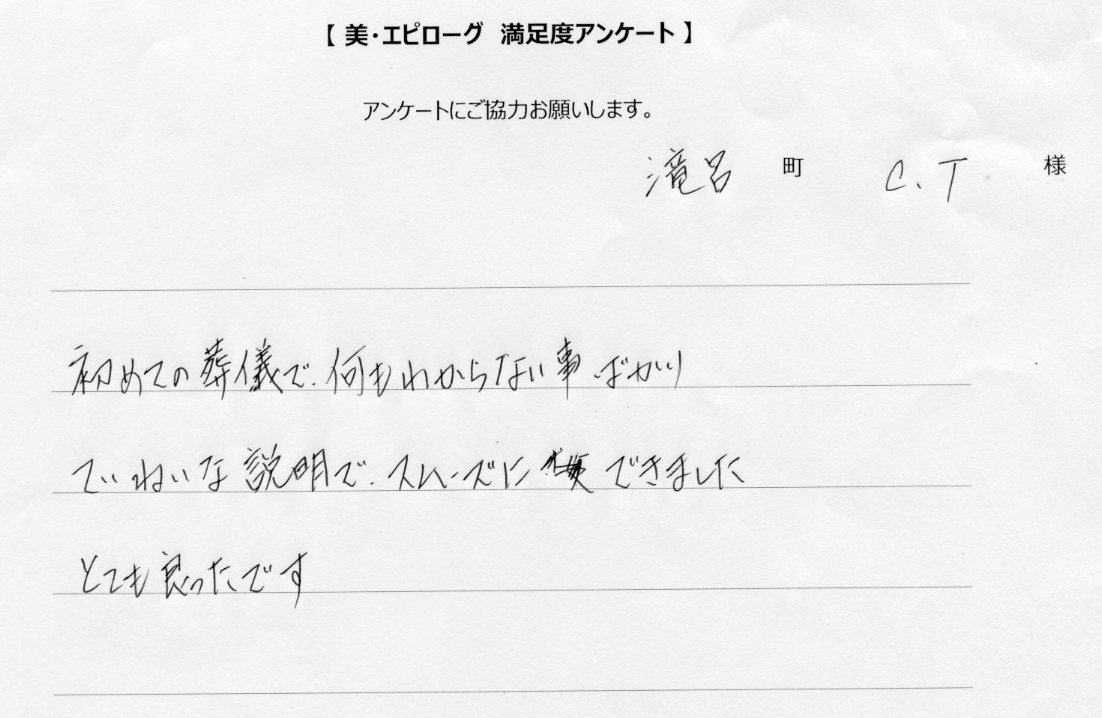 【 美・エピローグ 満足度アンケート 】
アンケートにご協力お願いします。
滝呂 町 C.T 様
初めての葬儀で、何もわからない事ばかり
ていねいな説明で、スムーズに できました
とても良ったです